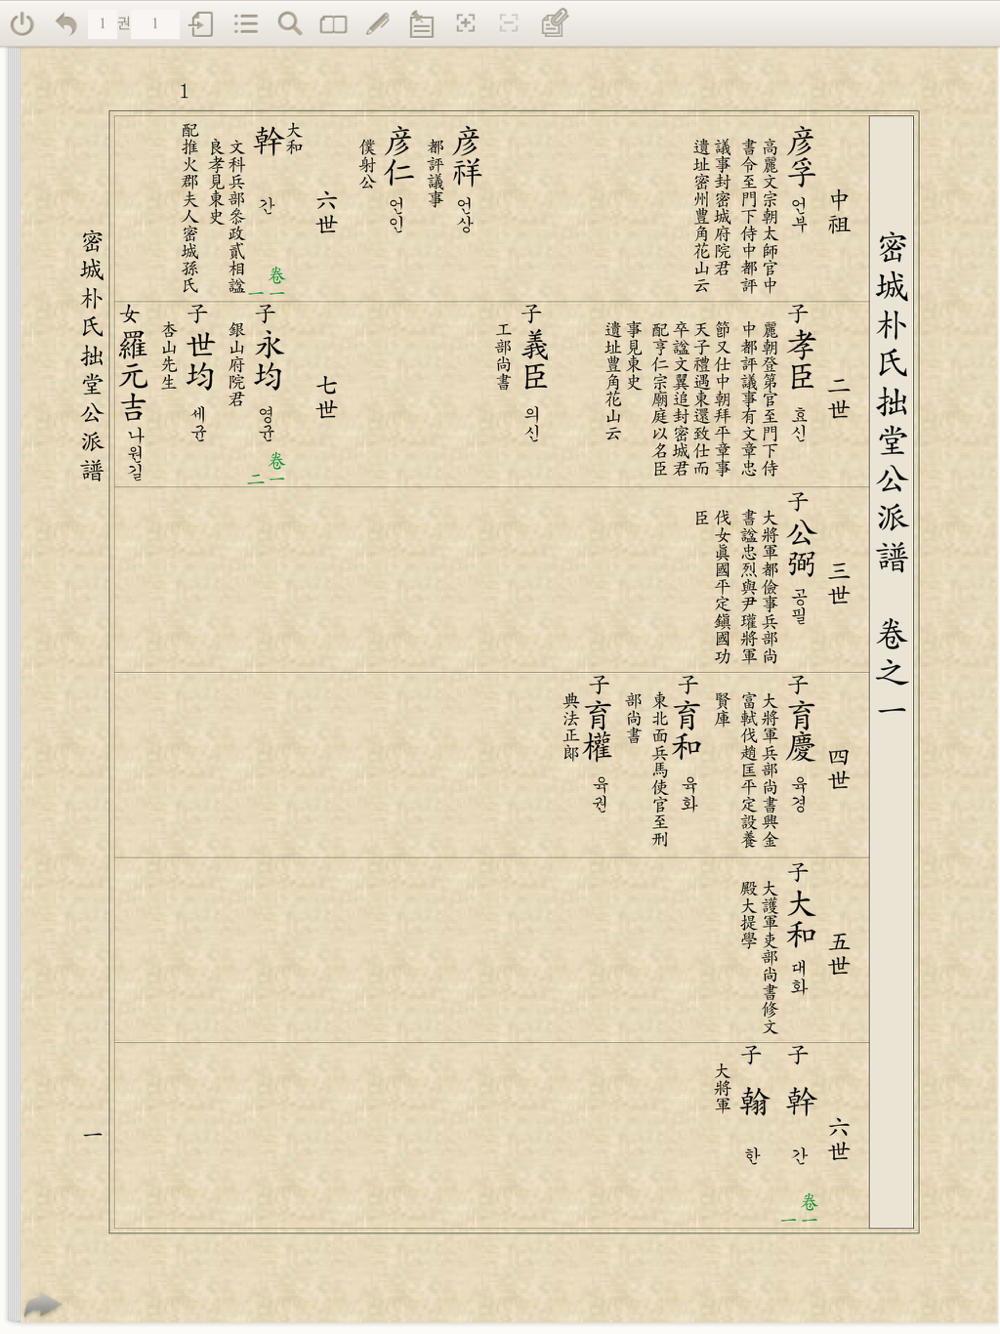 1 권 1
1
密城朴氏拙堂公派譜 卷之一
中祖
彦孚 언부
高麗文宗朝太師官中
書令至門下侍中都評
議事封密城府院君
遺址密州豊角花山云
彦祥 언상
都評議事
彦仁 언인
僕射公
六世
大和
幹 간
文科兵部叅政貳相諡
良孝見東史
配推火郡夫人密城孫氏
卷一
一
二世
子 孝臣 효신
麗朝登第官至門下侍
中都評議事有文章忠
節又仕中朝拜平章事
天子禮遇東還致仕而
卒諡文翼追封密城君
配亨仁宗廟庭以名臣
事見東史
遺址豊角花山云
子 義臣 의신
工部尚書
七世
子 永均 영균
銀山府院君
卷一
二
子 世均 세균
杏山先生
女 羅元吉 나원길
三世
子 公弼 공필
大將軍都僉事兵部尚
書諡忠烈與尹瓘將軍
伐女眞國平定鎭國功
臣
四世
子 育慶 육경
大將軍兵部尚書與金
富軾伐趙匡平定設養
賢庫
子 育和 육화
東北面兵馬使官至刑
部尚書
子 育權 육권
典法正郞
五世
子 大和 대화
大護軍吏部尚書修文
殿大提學
六世
子 幹 간
卷一
一
子 翰 한
大將軍
密城朴氏拙堂公派譜
一